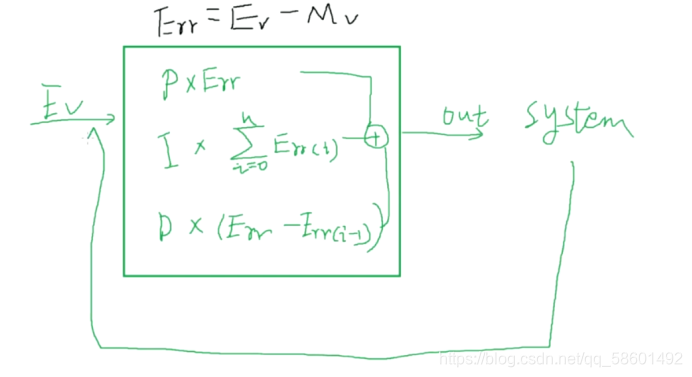 Err = Ev - Mv
Ev
P × Err
I × n ∑ i=0 Err(i)
+
D × (Err - Err(i-1))
out
system
https://blog.csdn.net/qq_58601492